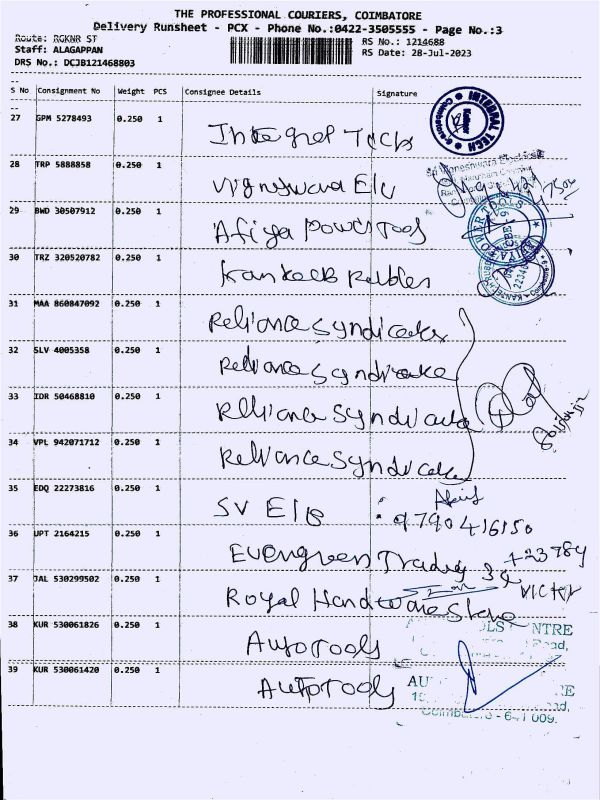 THE PROFESSIONAL COURIERS, COIMBATORE
Delivery Runsheet - PCX - Phone No.:0422-3505555 - Page No.:3
Route: RGKNR ST
RS No.: 1214688
Staff: ALAGAPPAN
RS Date: 28-Jul-2023
DRS No.: DCJB121468803
S No Consignment No Weight PCS Consignee Details Signature
27 GPM 5278493 0.250 1 Integral Tech
INTEGRAL TECH
28 TRP 5888858 0.250 1 Vigneswara Ele
29 BWD 30507912 0.250 1 Afiya Powertools
30 TRZ 320520782 0.250 1
31 MAA 860847092 0.250 1 Reliance Syndicate
32 SLV 4005358 0.250 1 Reliance Syndicate
33 IDR 50468810 0.250 1 Reliance Syndicate
34 VPL 942071712 0.250 1 Reliance Syndicate
35 EDQ 22273816 0.250 1 SV Ele : 9790416150
36 UPT 2164215 0.250 1 Evengreen Trading
37 JAL 530299502 0.250 1 Royal Hardware Store VICTOR
38 KUR 530061826 0.250 1 Autotools
39 KUR 530061420 0.250 1 Autotools
Coimbatore - 641 009.